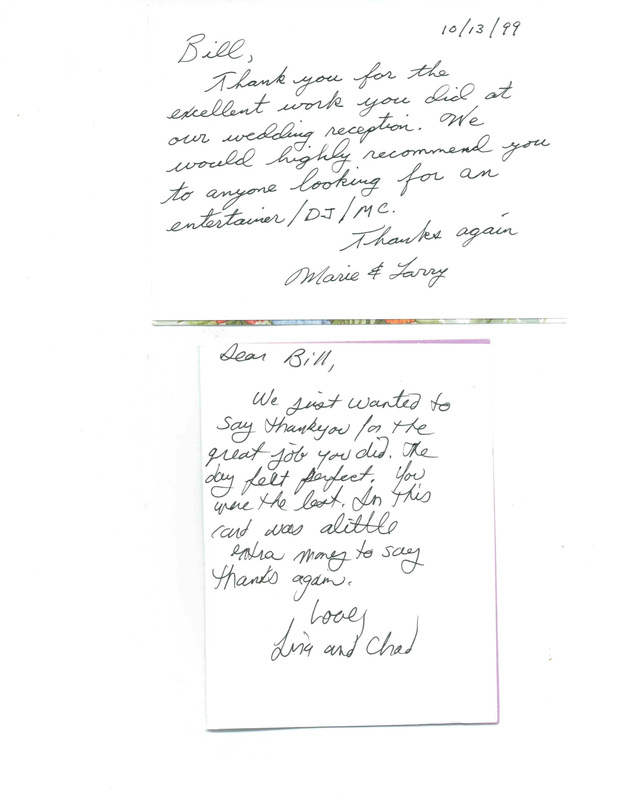 10/13/99
Bill,
Thank you for the
excellent work you did at
our wedding reception. We
would highly recommend you
to anyone looking for an
entertainer/DJ/MC.
Thanks again
Marie & Larry
Dear Bill,
We just wanted to
say thankyou for the
great job you did. The
day felt perfect. You
were the best. In this
card was alittle
extra money to say
thanks again.
Love,
Lisa and Chad